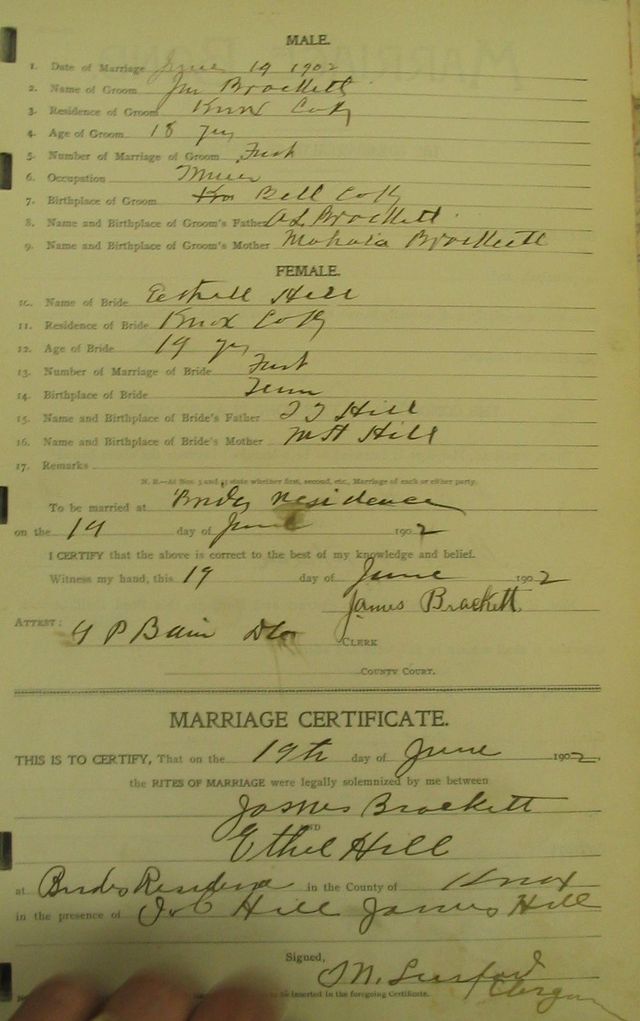 MALE.
1. Date of Marriage June 19 1902
2. Name of Groom Jim Brackett
3. Residence of Groom Knox Co Ky
4. Age of Groom 18 yrs
5. Number of Marriage of Groom First
6. Occupation Miner
7. Birthplace of Groom Bell Co Ky
8. Name and Birthplace of Groom's Father Brackett
9. Name and Birthplace of Groom's Mother Brackett
FEMALE.
10. Name of Bride Hill
11. Residence of Bride Knox Co Ky
12. Age of Bride 19 yrs
13. Number of Marriage of Bride First
14. Birthplace of Bride Tenn
15. Name and Birthplace of Bride's Father Hill
16. Name and Birthplace of Bride's Mother Hill
17. Remarks
N. B.—At Nos. 5 and 13 state whether first, second, etc., Marriage of each or either party.
To be married at Brides residence
on the 19 day of June 1902
I CERTIFY that the above is correct to the best of my knowledge and belief.
Witness my hand, this 19 day of June 1902
James Brackett
ATTEST: Bain
CLERK
COUNTY COURT.
MARRIAGE CERTIFICATE.
THIS IS TO CERTIFY, That on the 19th day of June 1902
the RITES OF MARRIAGE were legally solemnized by me between
James Brackett
AND
Ethel Hill
at Brides Residence in the County of Knox
in the presence of Hill James Hill
Signed,
to be inserted in the foregoing Certificate.